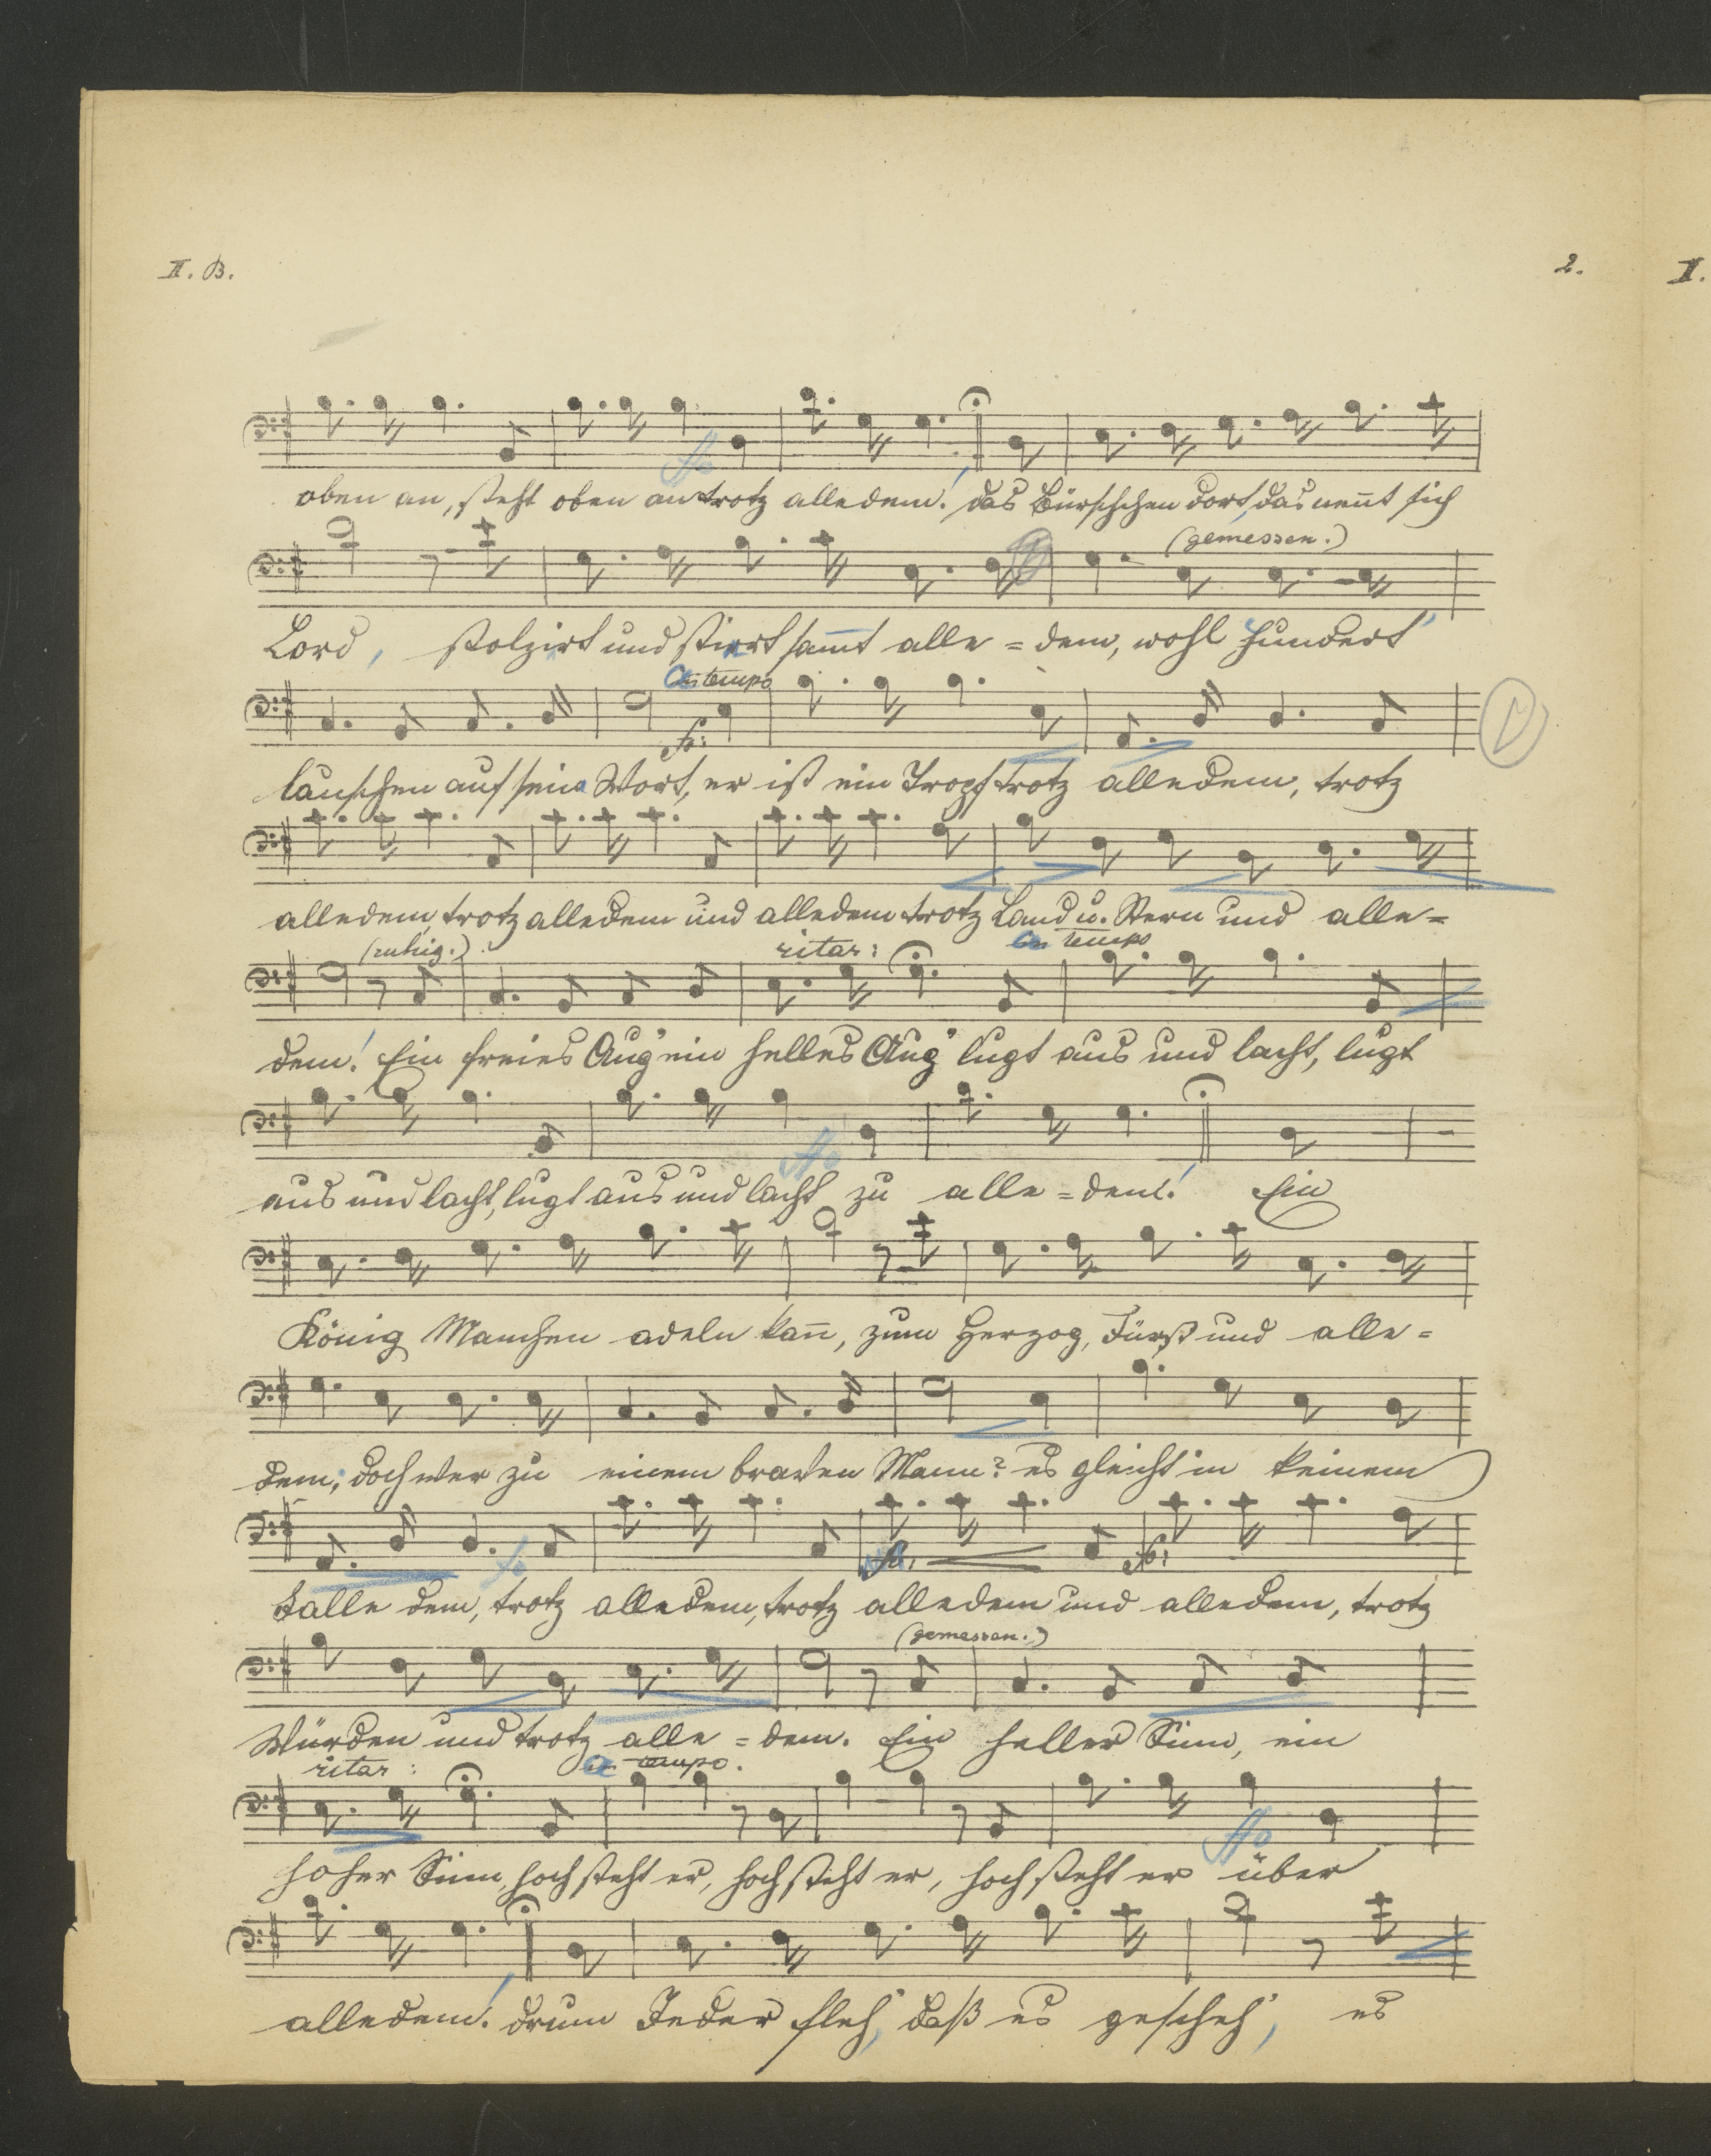 II. B.
2.
II.
ffo
oben an, steht oben an trotz alledem! das Bürschchen dort, das nen̄t sich
(gemessen.)
Lord, stolzirt und stiert sam̄t alle = dem, wohl hundert
a tempo
fo:
lauschen auf sein Wort, er ist ein Tropf trotz alledem, trotz
alledem, trotz alledem und alledem trotz Band u. Stern und alle=
(ruhig.) ritar: a tempo
dem! Ein freies Aug' ein helles Aug' lugt aus und lacht, lugt
ffo
aus und lacht, lugt aus und lacht zu alle = dem! Ein
König Manchen adeln kan̄, zum Herzog, Fürst und alle=
dem; doch wer zu einem braven Mann? es gleicht in keinem
fo fo:
Falle dem, trotz alledem, trotz alledem und alledem, trotz
(gemessen.)
Würden und trotz alle = dem. Ein heller Sinn, ein
ritar: a tempo.
ffo
hoher Sinn, hoch steht er, hoch steht er, hoch steht er über
alledem! drum Jeder fleh', daß es gescheh', es